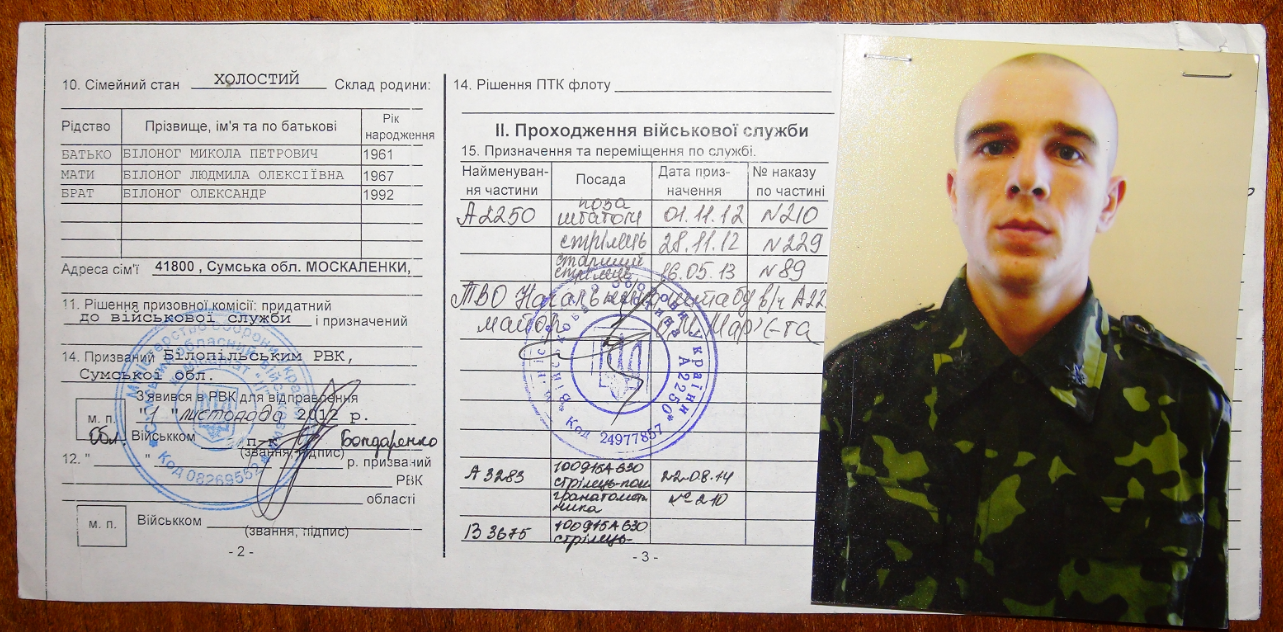 10. Сімейний стан ХОЛОСТИЙ Склад родини:
Рідство Прізвище, ім'я та по батькові Рік народження
БАТЬКО БІЛОНОГ МИКОЛА ПЕТРОВИЧ 1961
МАТИ БІЛОНОГ ЛЮДМИЛА ОЛЕКСІЇВНА 1967
БРАТ БІЛОНОГ ОЛЕКСАНДР 1992
Адреса сім'ї 41800 , Сумська обл. МОСКАЛЕНКИ,
11. Рішення призовної комісії: придатний
до військової служби і призначений
14. Призваний Білопільським РВК,
Сумської обл.
З'явився в РВК для відправлення
м. п. "1 " листопада 2012 р.
Обл. Військком п-к Бондаренко
(звання, підпис)
12. " " р. призваний
РВК
області
м. п. Військком
(звання, підпис)
- 2 -
Міністерство оборони України
Код 08269552
14. Рішення ПТК флоту
ІІ. Проходження військової служби
15. Призначення та переміщення по службі.
Найменування частини Посада Дата призначення № наказу по частині
А2250 поза штатом 01.11.12 №210
стрілець 28.11.12 №229
старший стрілець 16.05.13 №89
ТВО Начальника штабу в/ч А22
майор
України А2250 * Код 24977857 *
А3283 100915А630 22.08.14
стрілець-пом №210
гранатомет
ника
В3675 100915А630
стрілець-
- 3 -